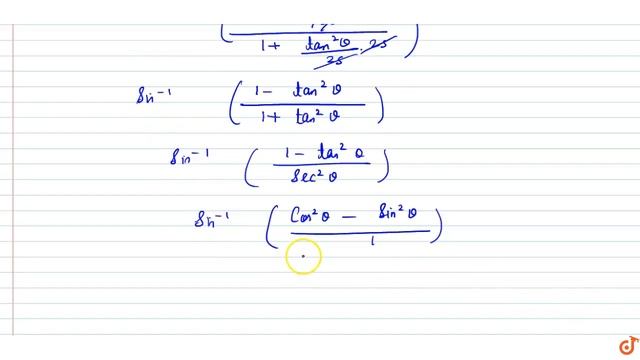 1 + tan²θ/25 · 25
Sin⁻¹ ( (1 - tan²θ) / (1 + tan²θ) )
Sin⁻¹ ( (1 - tan²θ) / Sec²θ )
Sin⁻¹ ( (Cos²θ - Sin²θ) / 1 )